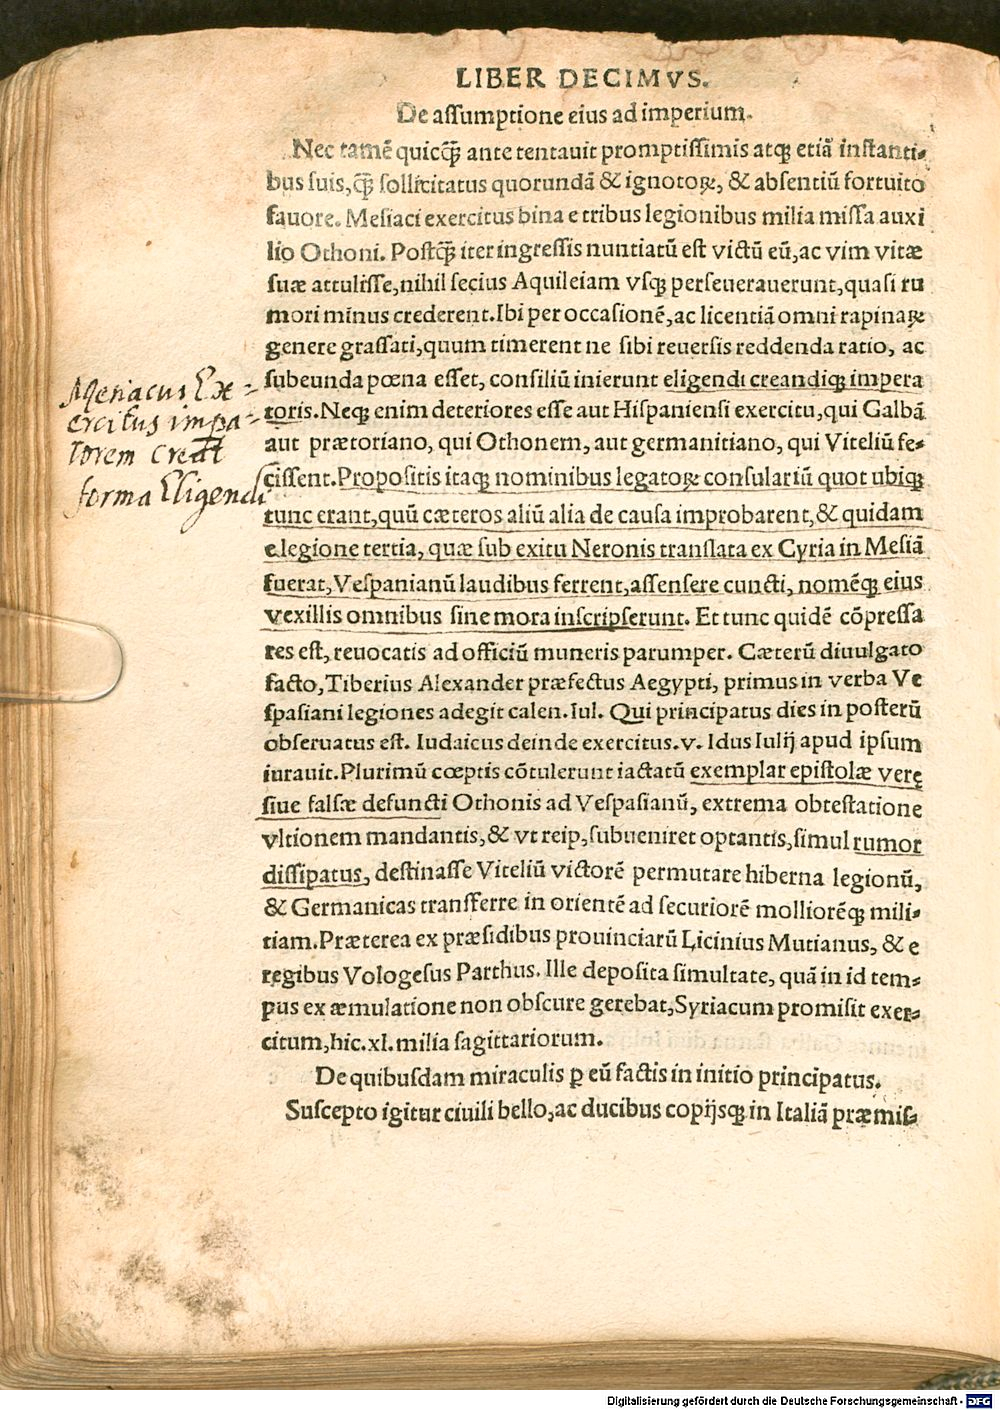 LIBER DECIMVS.
De assumptione eius ad imperium.
Nec tamē quicq̄ȝ ante tentauit promptissimis atqȝ etiā instanti-
bus suis, q̄ȝ sollicitatus quorundā & ignotoꝝ, & absentiū fortuito
fauore. Mesiaci exercitus bina e tribus legionibus milia missa auxi
lio Othoni. Postq̄ȝ iter ingressis nuntiatū est victū eū, ac vim vitæ
suæ attulisse, nihil secius Aquileiam vsqȝ perseuerauerunt, quasi ru
mori minus crederent. Ibi per occasionē, ac licentiā omni rapinaꝝ
genere grassati, quum timerent ne sibi reuersis reddenda ratio, ac
subeunda pœna esset, consiliū inierunt eligendi creandiqȝ impera
toris. Neqȝ enim deteriores esse aut Hispaniensi exercitu, qui Galbā
aut prætoriano, qui Othonem, aut germanitiano, qui Viteliū fe-
cissent. Propositis itaqȝ nominibus legatoꝝ consulariū quot ubiqȝ
tunc erant, quū cæteros aliū alia de causa improbarent, & quidam
e legione tertia, quæ sub exitu Neronis translata ex Cyria in Mesiā
fuerat, Vespanianū laudibus ferrent, assensere cuncti, nomēqȝ eius
vexillis omnibus sine mora inscripserunt. Et tunc quidē cōpressa
res est, reuocatis ad officiū muneris parumper. Cæterū diuulgato
facto, Tiberius Alexander præfectus Aegypti, primus in verba Ve
spasiani legiones adegit calen. Iul. Qui principatus dies in posterū
obseruatus est. Iudaicus deinde exercitus. v. Idus Iulij apud ipsum
iurauit. Plurimū cœptis cōtulerunt iactatū exemplar epistolæ verę
siue falsæ defuncti Othonis ad Vespasianū, extrema obtestatione
vltionem mandantis, & vt reip, subueniret optantis, simul rumor
dissipatus, destinasse Viteliū victorē permutare hiberna legionū,
& Germanicas transfferre in orientē ad securiorē molliorēqȝ mili-
tiam. Præterea ex præsidibus prouinciarū Licinius Mutianus, & e
regibus Vologesus Parthus. Ille deposita simultate, quā in id tem-
pus ex æmulatione non obscure gerebat, Syriacum promisit exer-
citum, hic. xl. milia sagittariorum.
De quibusdam miraculis ꝑ eū factis in initio principatus.
Suscepto igitur ciuili bello, ac ducibus copijsqȝ in Italiā præmis-
Mesiacus Ex-
ercitus impa-
torem creat
forma Eligendi
Digitalisierung gefördert durch die Deutsche Forschungsgemeinschaft - DFG